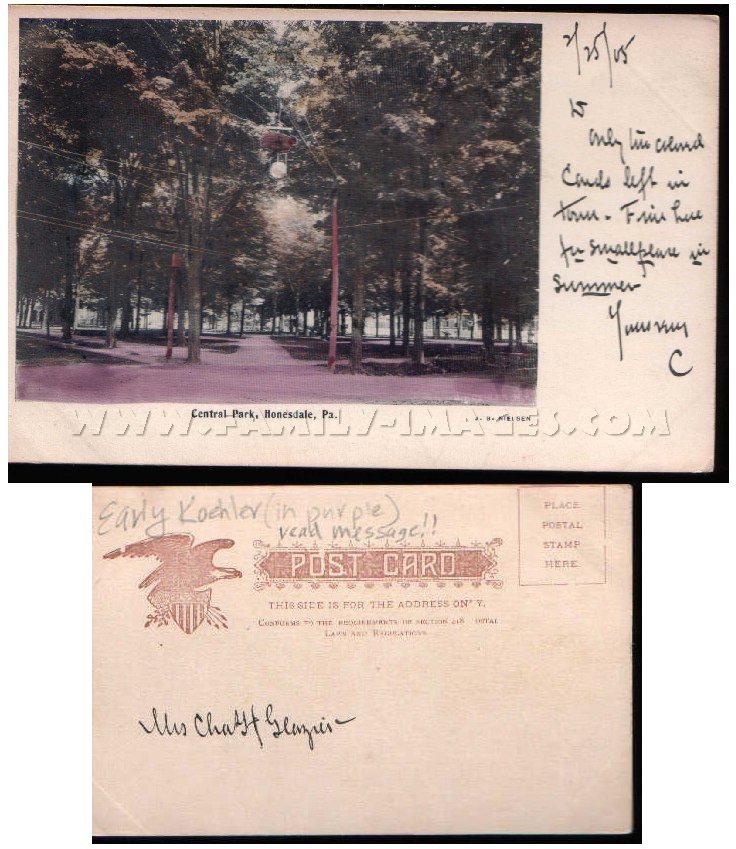 2/25/05
only two colored
Cards left in
town - Fine
for small place in
summer
C
Central Park, Honesdale, Pa.
J. B. NIELSEN
WWW.FAMILY-IMAGES.COM
Early Koehler (in purple)
read message!!
POST CARD
PLACE
POSTAL
STAMP
HERE
THIS SIDE IS FOR THE ADDRESS ON Y.
CONFORMS TO THE REQUIREMENTS OF SECTION 418 OSTAL
LAWS AND REGULATIONS
Mrs Chas H Glazier